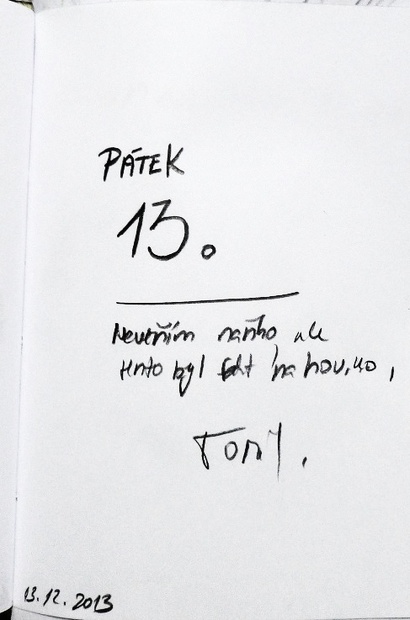 PÁTEK
13.
Nevěřím naňho ale
tento byl fakt na hovno,
Tony.
13.12.2013